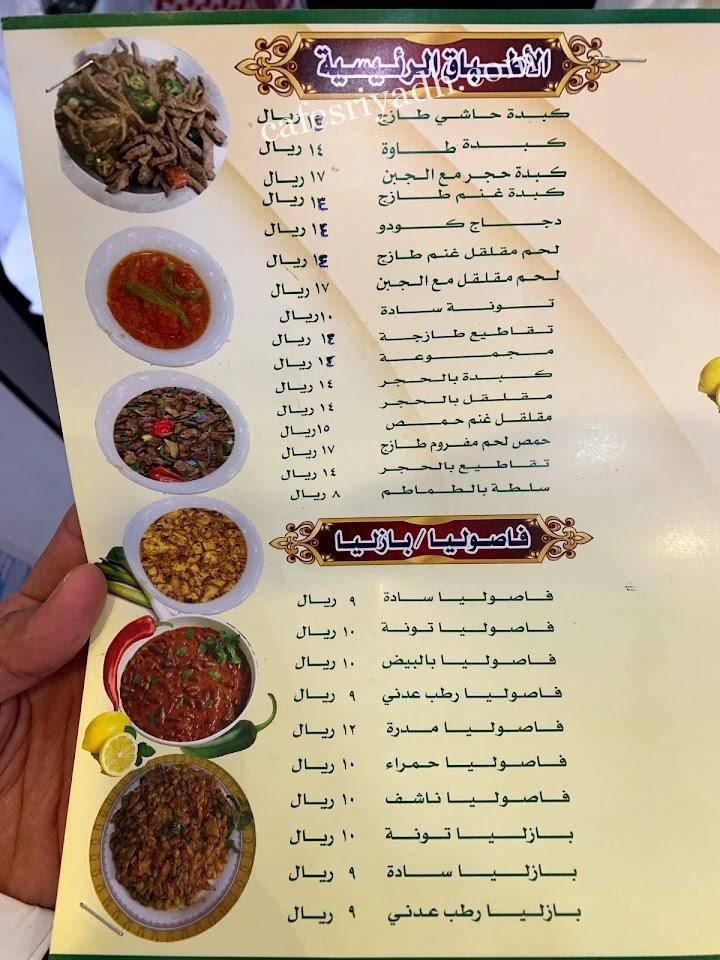 الأطباق الرئيسية
cafesriyadh.com
كبدة حاشي طازج ١٤ ريال
كبدة طاوة ١٤ ريال
كبدة حجر مع الجبن ١٧ ريال
كبدة غنم طازج ١٣ ريال
دجاج كودو ١٤ ريال
لحم مقلقل غنم طازج ١٤ ريال
لحم مقلقل مع الجبن ١٧ ريال
تونة سادة ١٠ ريال
تقاطيع طازجة ١٣ ريال
مجموعة ١٤ ريال
كبدة بالحجر ١٤ ريال
مقلقل بالحجر ١٤ ريال
مقلقل غنم حمص ١٥ ريال
حمص لحم مفروم طازج ١٧ ريال
تقاطيع بالحجر ١٤ ريال
سلطة بالطماطم ٨ ريال
فاصوليا / بازليا
فاصوليا سادة ٩ ريال
فاصوليا تونة ١٠ ريال
فاصوليا بالبيض ١٠ ريال
فاصوليا رطب عدني ٩ ريال
فاصوليا مدرة ١٢ ريال
فاصوليا حمراء ١٠ ريال
فاصوليا ناشف ١٠ ريال
بازليا تونة ١٠ ريال
بازليا سادة ٩ ريال
بازليا رطب عدني ٩ ريال